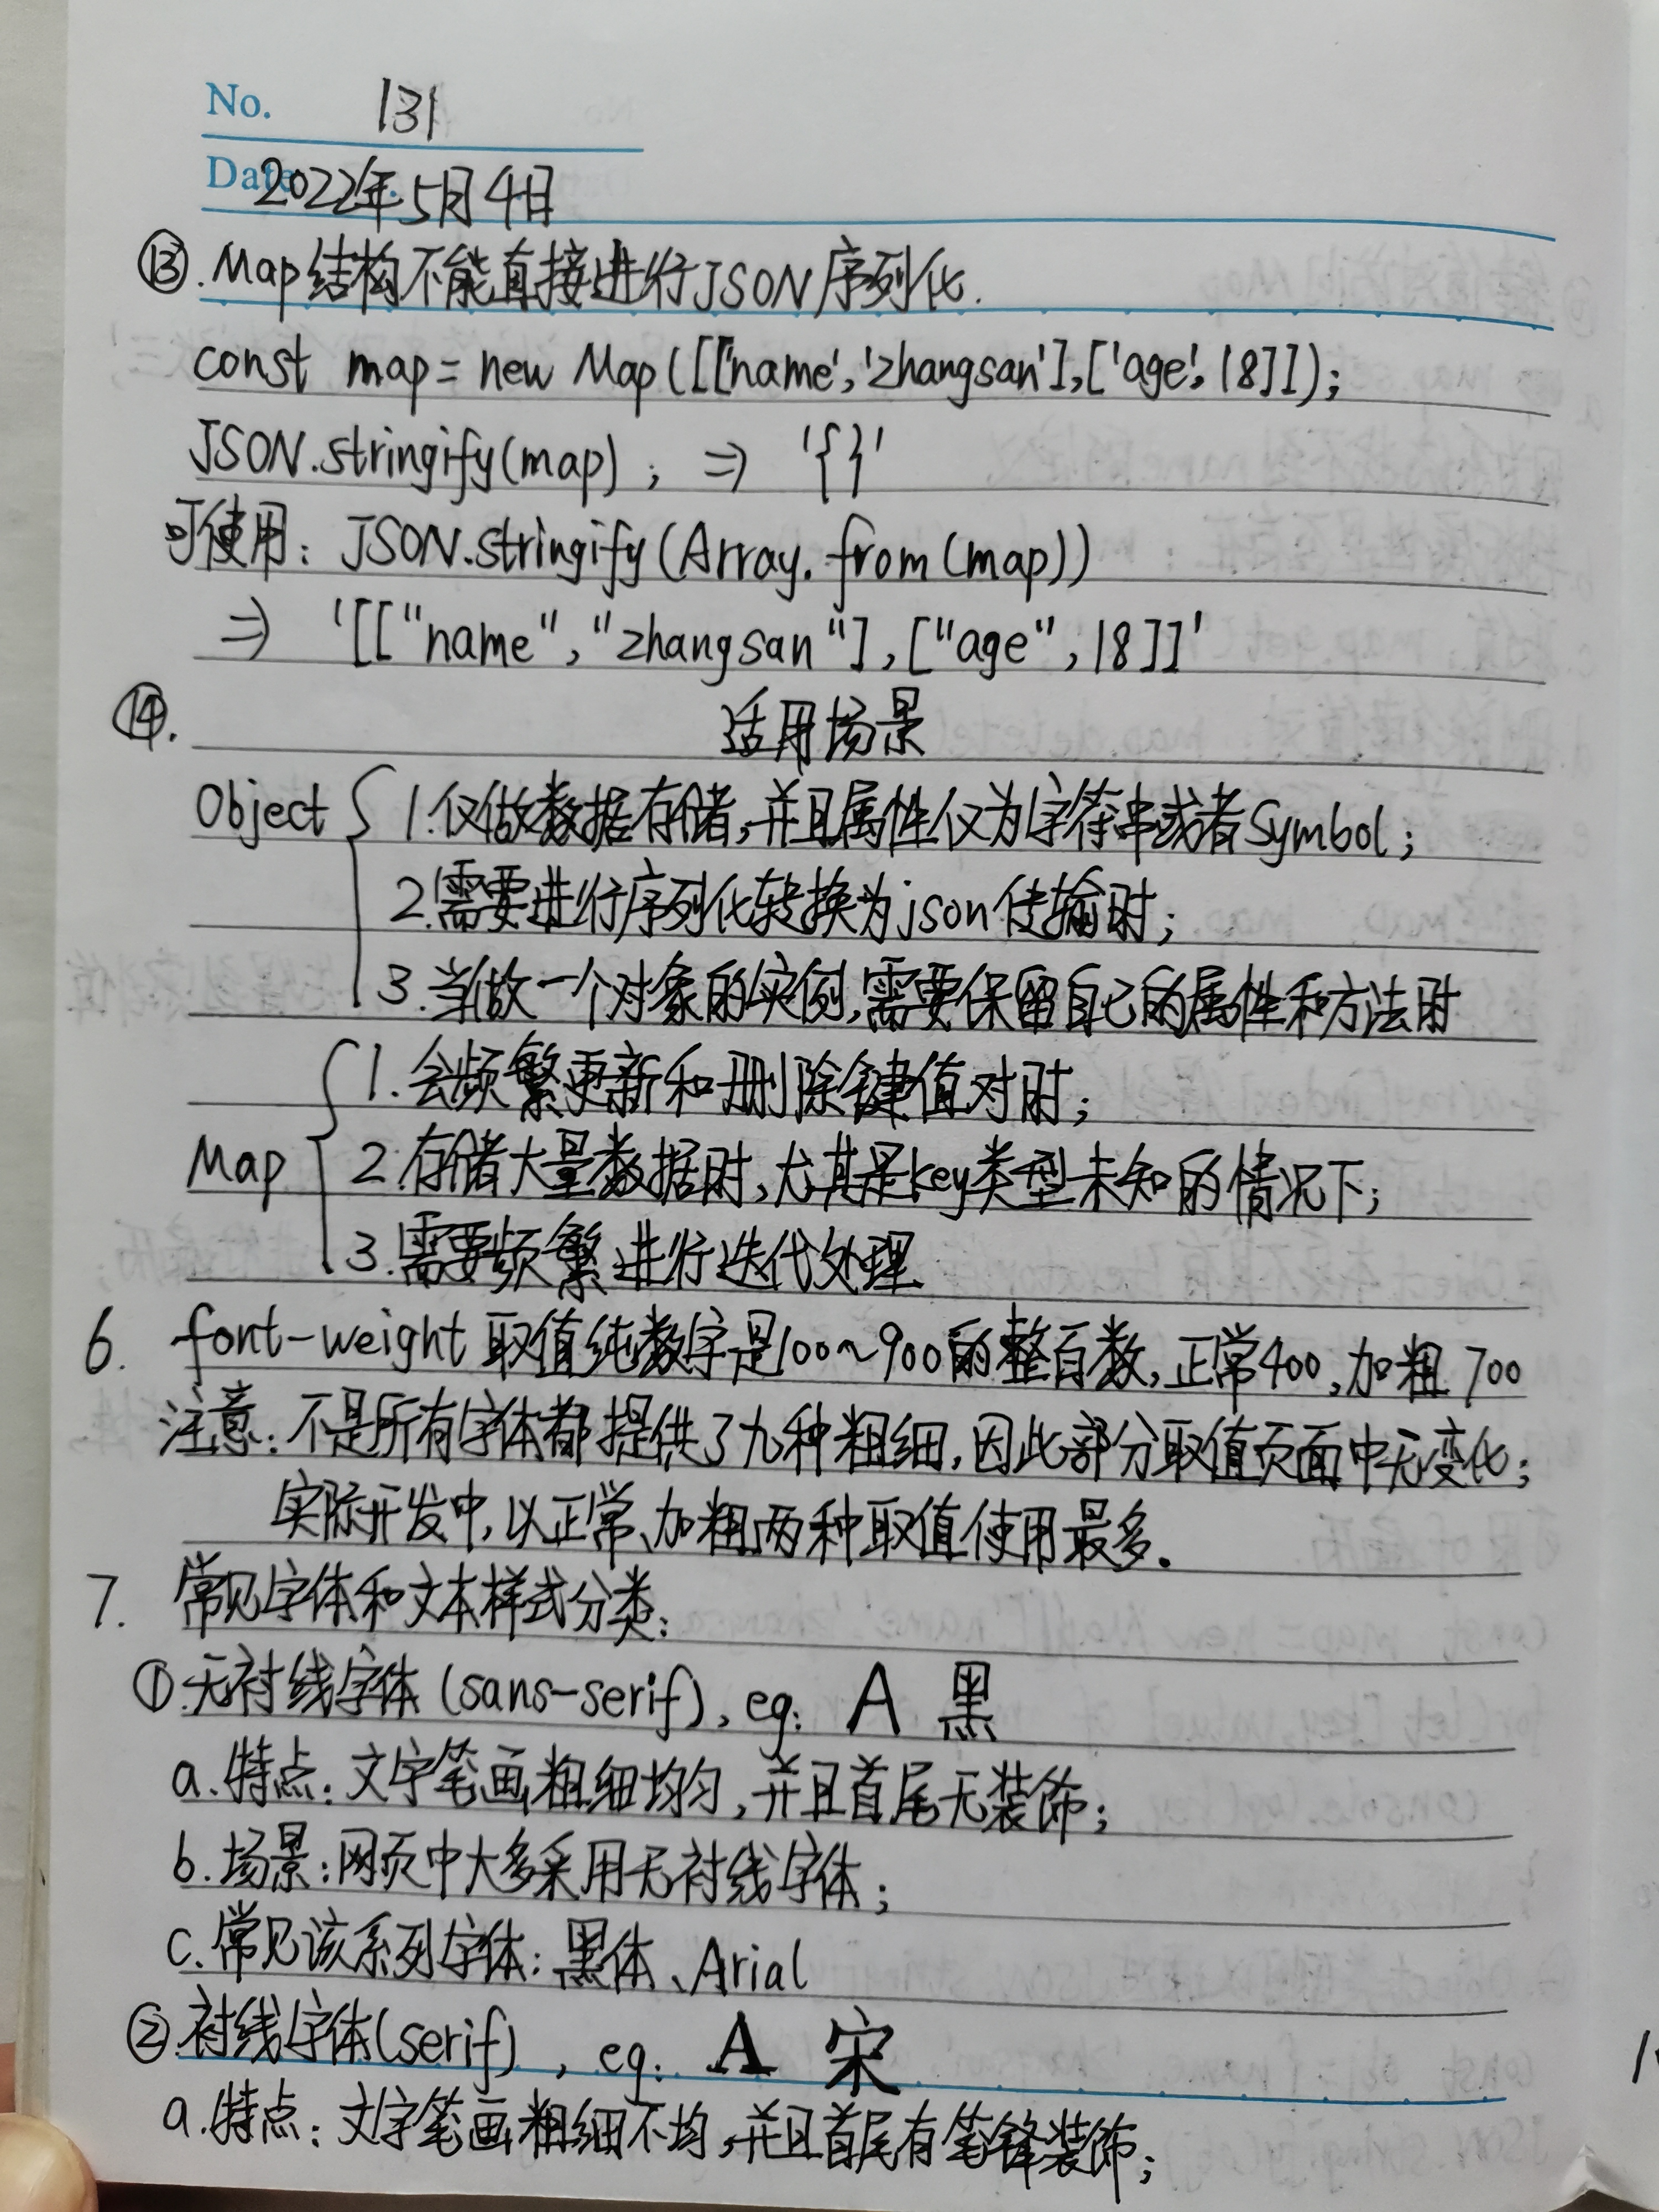 No. 131
Date 2022年5月4日
⑬.Map结构不能直接进行JSON序列化.
const map = new Map([['name','zhangsan'],['age',18]]);
JSON.stringify(map); ⇒ '{}'
可使用: JSON.stringify(Array.from(map))
⇒ '[["name","zhangsan"],["age",18]]'
⑭. 适用场景
Object { 1.仅做数据存储,并且属性仅为字符串或者Symbol;
2.需要进行序列化转换为json传输时;
3.当做一个对象的实例,需要保留自己的属性和方法时
1.会频繁更新和删除键值对时;
Map { 2.存储大量数据时,尤其是key类型未知的情况下;
3.需要频繁进行迭代处理.
6. font-weight 取值纯数字是100~900的整百数,正常400,加粗700
注意:不是所有字体都提供了九种粗细,因此部分取值页面中无变化;
实际开发中,以正常、加粗两种取值使用最多.
7. 常见字体和文本样式分类:
①.无衬线字体(sans-serif),eg: A 黑
a.特点:文字笔画粗细均匀,并且首尾无装饰;
b.场景:网页中大多采用无衬线字体;
c.常见该系列字体:黑体、Arial
②.衬线字体(serif),eg: A 宋
a.特点:文字笔画粗细不均,并且首尾有笔锋装饰;